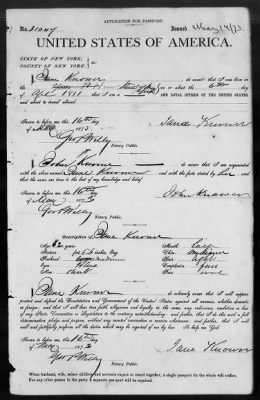 APPLICATION FOR PASSPORT.
Issued May 17/73
UNITED STATES OF AMERICA.
STATE OF NEW YORK,
COUNTY OF NEW YORK
I Jane Knower do swear that I was born in
State of on or about the day
of 1811 that I am a AND LOYAL CITIZEN OF THE UNITED STATES,
and about to travel abroad.
Sworn to before me this 16th day
of 1873
Jane Knower
Geo. P. Willey
I John Knower do swear that I am acquainted
with the above named Jane Knower and with the facts stated by her and
that the same are true to the best of my knowledge and belief.
Sworn to before me this 16th
of May 1873
John Knower
Geo. P. Willey
Description of Jane Knower
Age, 62 years
Mouth,
Stature, feet inches, Eng.
Chin,
Forehead,
Hair,
Eyes,
Complexion,
Nose,
Face,
I Jane Knower do solemnly swear that I will support,
protect and defend the Constitution and Government of the United States against all enemies, whether domestic
or foreign, and that I will bear true faith, allegiance and loyalty to the same, any ordinance, resolution or law of
any State Convention or Legislature to the contrary notwithstanding; and further, that I do this with a full
determination, pledge and purpose, without any mental reservation or evasion whatsoever; and further, that I will
well and faithfully perform all the duties which may be required of me by law. So help me God.
Sworn to before me this 16th day
of May 1873
Geo. P. Willey
Jane Knower
When husband, wife, minor children and servants expect to travel together, a single passport for the whole will suffice.
For any other person in the party a separate passport will be required.